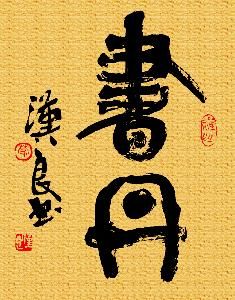 書丹
漢良书